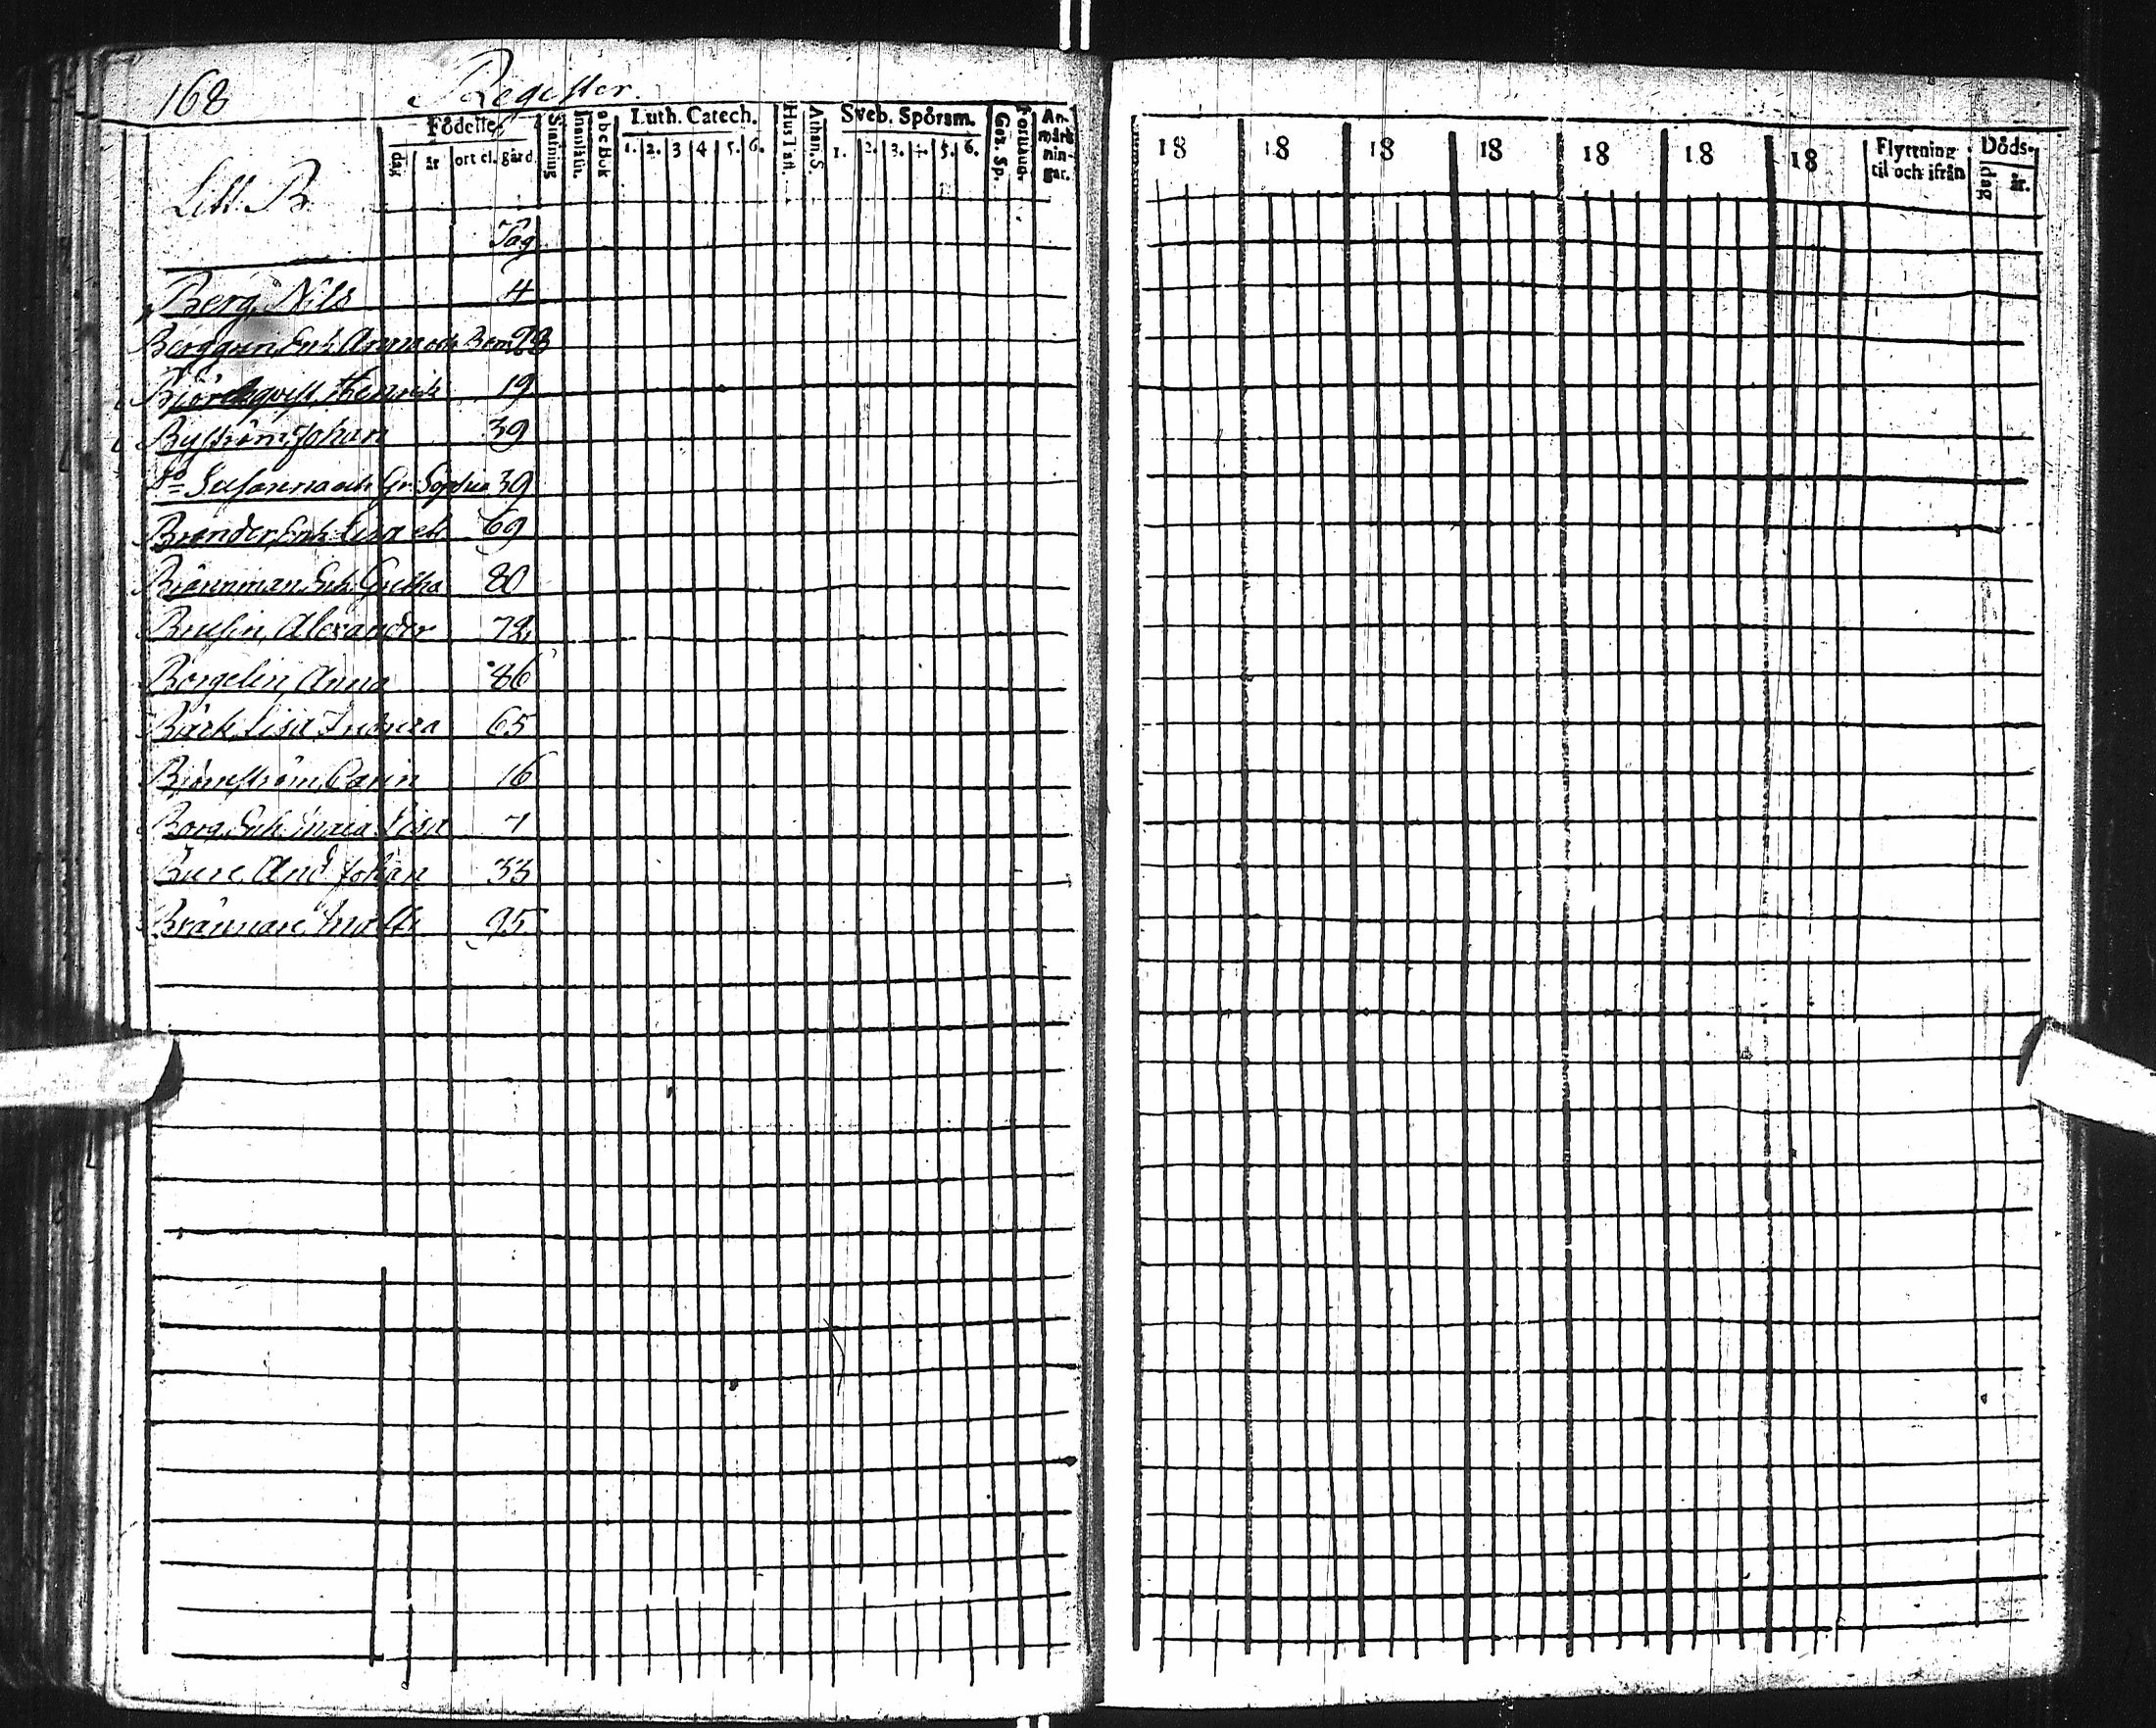 168 Register.
Födelse
dag år ort el. gård.
Stafning
abc Bok
Luth. Catech.
1. 2. 3 4. 5. 6.
Hus Taft.
Athan. S.
Sveb. Spörsm.
1. 2. 3. 4. 5. 6.
Gez. Sp.
An-
märk
nin-
gar.
Litt. B.
Pag
Berg, Nils 4
Berggren, Enk. Anna och 28
Björckqvist, Henrik 19
Byström, Johan 39
Do Susanna och Gr. Sophia 39
Brander, Enk. Lisa 69
Brännman, Enk. Gretha 80
Brusin, Alexander 72
Borgelin, Anna 86
Bäck, Lisa 65
Björnström, Carin 16
Borg, Enk. Maria Lisa 7
Bure, And. Johan 33
Brännare Matts 95
18 18 18 18 18 18 18
Flyttning
til och ifrån
Döds-
dag år.